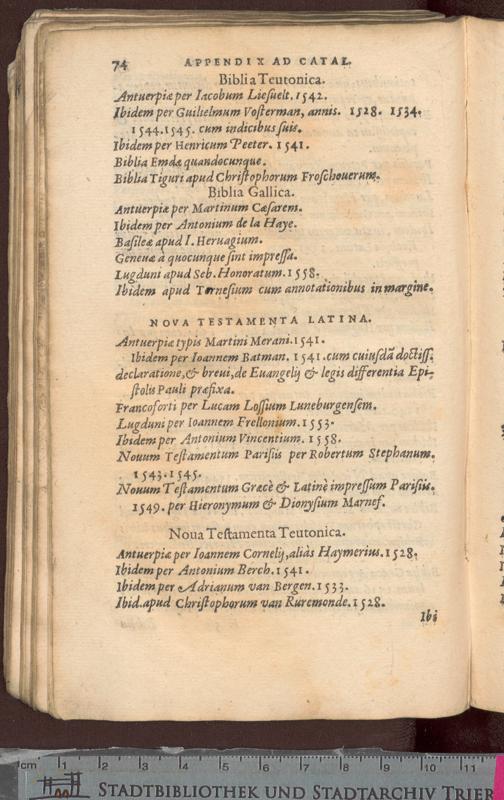 74 APPENDIX AD CATAL.
Biblia Teutonica.
Antuerpiæ per Iacobum Liesuelt. 1542.
Ibidem per Guilielmum Vosterman, annis. 1528. 1534.
1544. 1545. cum indicibus suis.
Ibidem per Henricum Peeter. 1541.
Biblia Emdæ quandocunque.
Biblia Tiguri apud Christophorum Froschouerum.
Biblia Gallica.
Antuerpiæ per Martinum Cæsarem.
Ibidem per Antonium de la Haye.
Basileæ apud I. Heruagium.
Geneuæ à quocunque sint impressa.
Lugduni apud Seb. Honoratum. 1558.
Ibidem apud Tornesium cum annotationibus in margine.
NOVA TESTAMENTA LATINA.
Antuerpiæ typis Martini Merani. 1541.
Ibidem per Ioannem Batman. 1541. cum cuiusdã doctiss.
declaratione, & breui, de Euangelij & legis differentia Epi-
stolis Pauli præfixa.
Francoforti per Lucam Lossium Luneburgensem.
Lugduni per Ioannem Frellonium. 1553.
Ibidem per Antonium Vincentium. 1558.
Nouum Testamentum Parisiis per Robertum Stephanum.
1543. 1545.
Nouum Testamentum Græcè & Latinè impressum Parisiis.
1549. per Hieronymum & Dionysium Marnef.
Noua Testamenta Teutonica.
Antuerpiæ per Ioannem Cornelij, aliàs Haymerius. 1528.
Ibidem per Antonium Berch. 1541.
Ibidem per Adrianum van Bergen. 1533.
Ibid. apud Christophorum van Ruremonde. 1528.
Ibi
cm 1 2 3 4 5 6 7 8 9 10 11
STADTBIBLIOTHEK UND STADTARCHIV TRIER